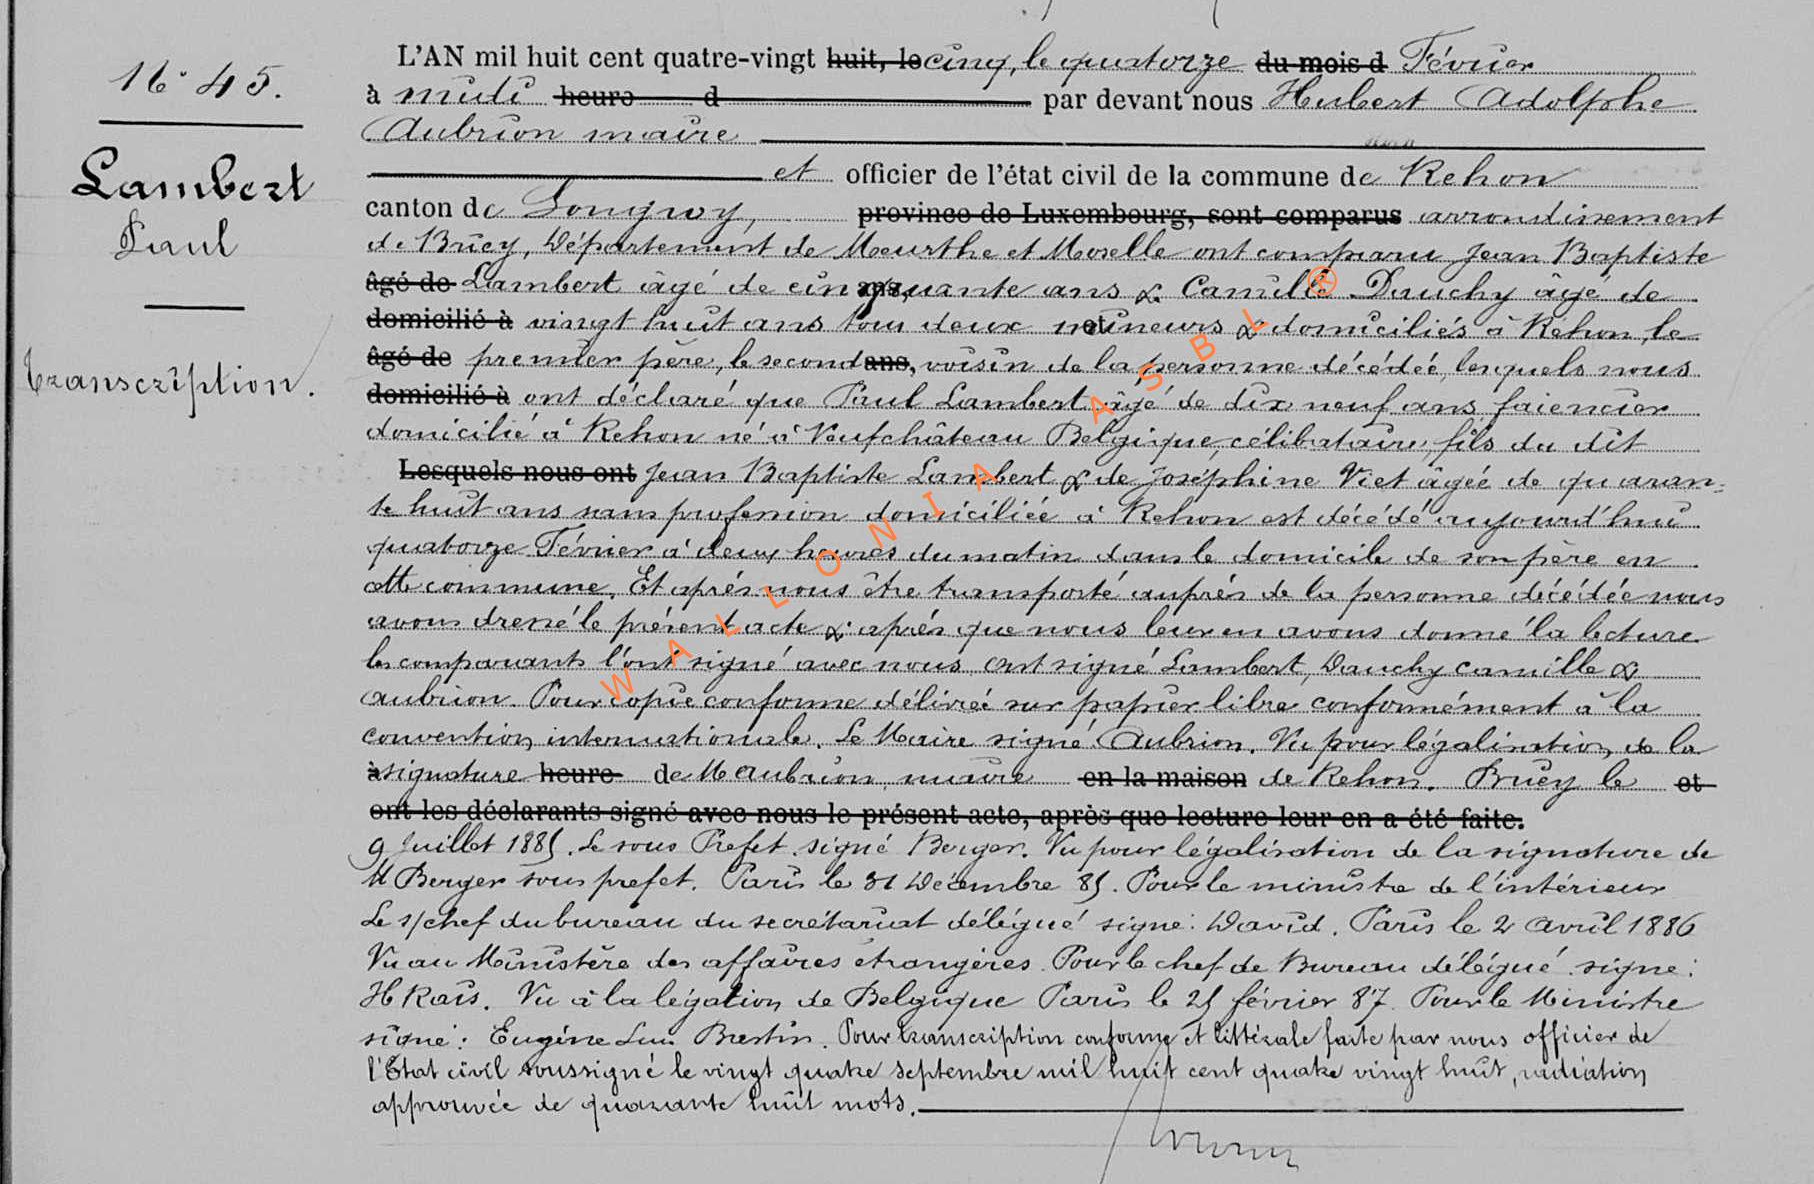 N° 45.
Lambert
Paul
Transcription.
L'AN mil huit cent quatre-vingt huit, le cinq, le quatorze du mois d Février
à midi heure d par devant nous Hubert Adolphe
Aubrion maire
et officier de l'état civil de la commune de Rehon
canton de Longwy, province de Luxembourg, sont comparus arrondissement
de Briey, Département de Meurthe et Moselle ont comparu Jean Baptiste
âgé de Lambert âgé de cinquante ans, & Camille Dauchy âgé de
domicilié à vingt huit ans tous deux mineurs & domiciliés à Rehon, le
âgé de premier père, le second ans, voisin de la personne décédée, lesquels nous
domicilié à ont déclaré que Paul Lambert âgé de dix neuf ans faiencier
domicilié à Rehon né à Neufchâteau Belgique, célibataire, fils du dit
Lesquels nous ont Jean Baptiste Lambert & de Joséphine Viet âgée de quaran=
te huit ans sans profession domiciliée à Rehon est décédé aujourd'hui
quatorze Février à deux heures du matin dans le domicile de son père en
cette commune. Et après nous être transporté auprés de la personne décédée nous
avons dressé le présent acte & après que nous leur en avons donné la lecture
les comparants l'ont signé avec nous. Ont signé Lambert, Dauchy camille &
Aubrion. Pour copie conforme délivrée sur papier libre conformément à la
convention internationale. Le Maire signé Aubrion. Vu pour légalisation de la
à signature heure de M Aubrion, maire en la maison de Rehon. Briey le et
ont les déclarants signé avec nous le présent acte, après que lecture leur en a été faite.
9 Juillet 1885. Le sous Préfet. signé Berger. Vu pour légalisation de la signature de
M Berger sous prefet. Paris le 31 Décembre 85. Pour le ministre de l'intérieur
Le s/chef du bureau du secrétariat délégué signé: David. Paris le 2 Avril 1886
Vu au Ministère des affaires étrangères. Pour le chef de Bureau délégué. signé:
H Rais. Vu à la légation de Belgique Paris le 25 février 87. Pour le Ministre
signé: Eugène Pour transcription conforme et littérale faite par nous officier de
l'Etat civil soussigné le vingt quatre septembre mil huit cent quatre vingt huit, radiation
approuvée de quarante huit mots.
WALLONIA ASBL®